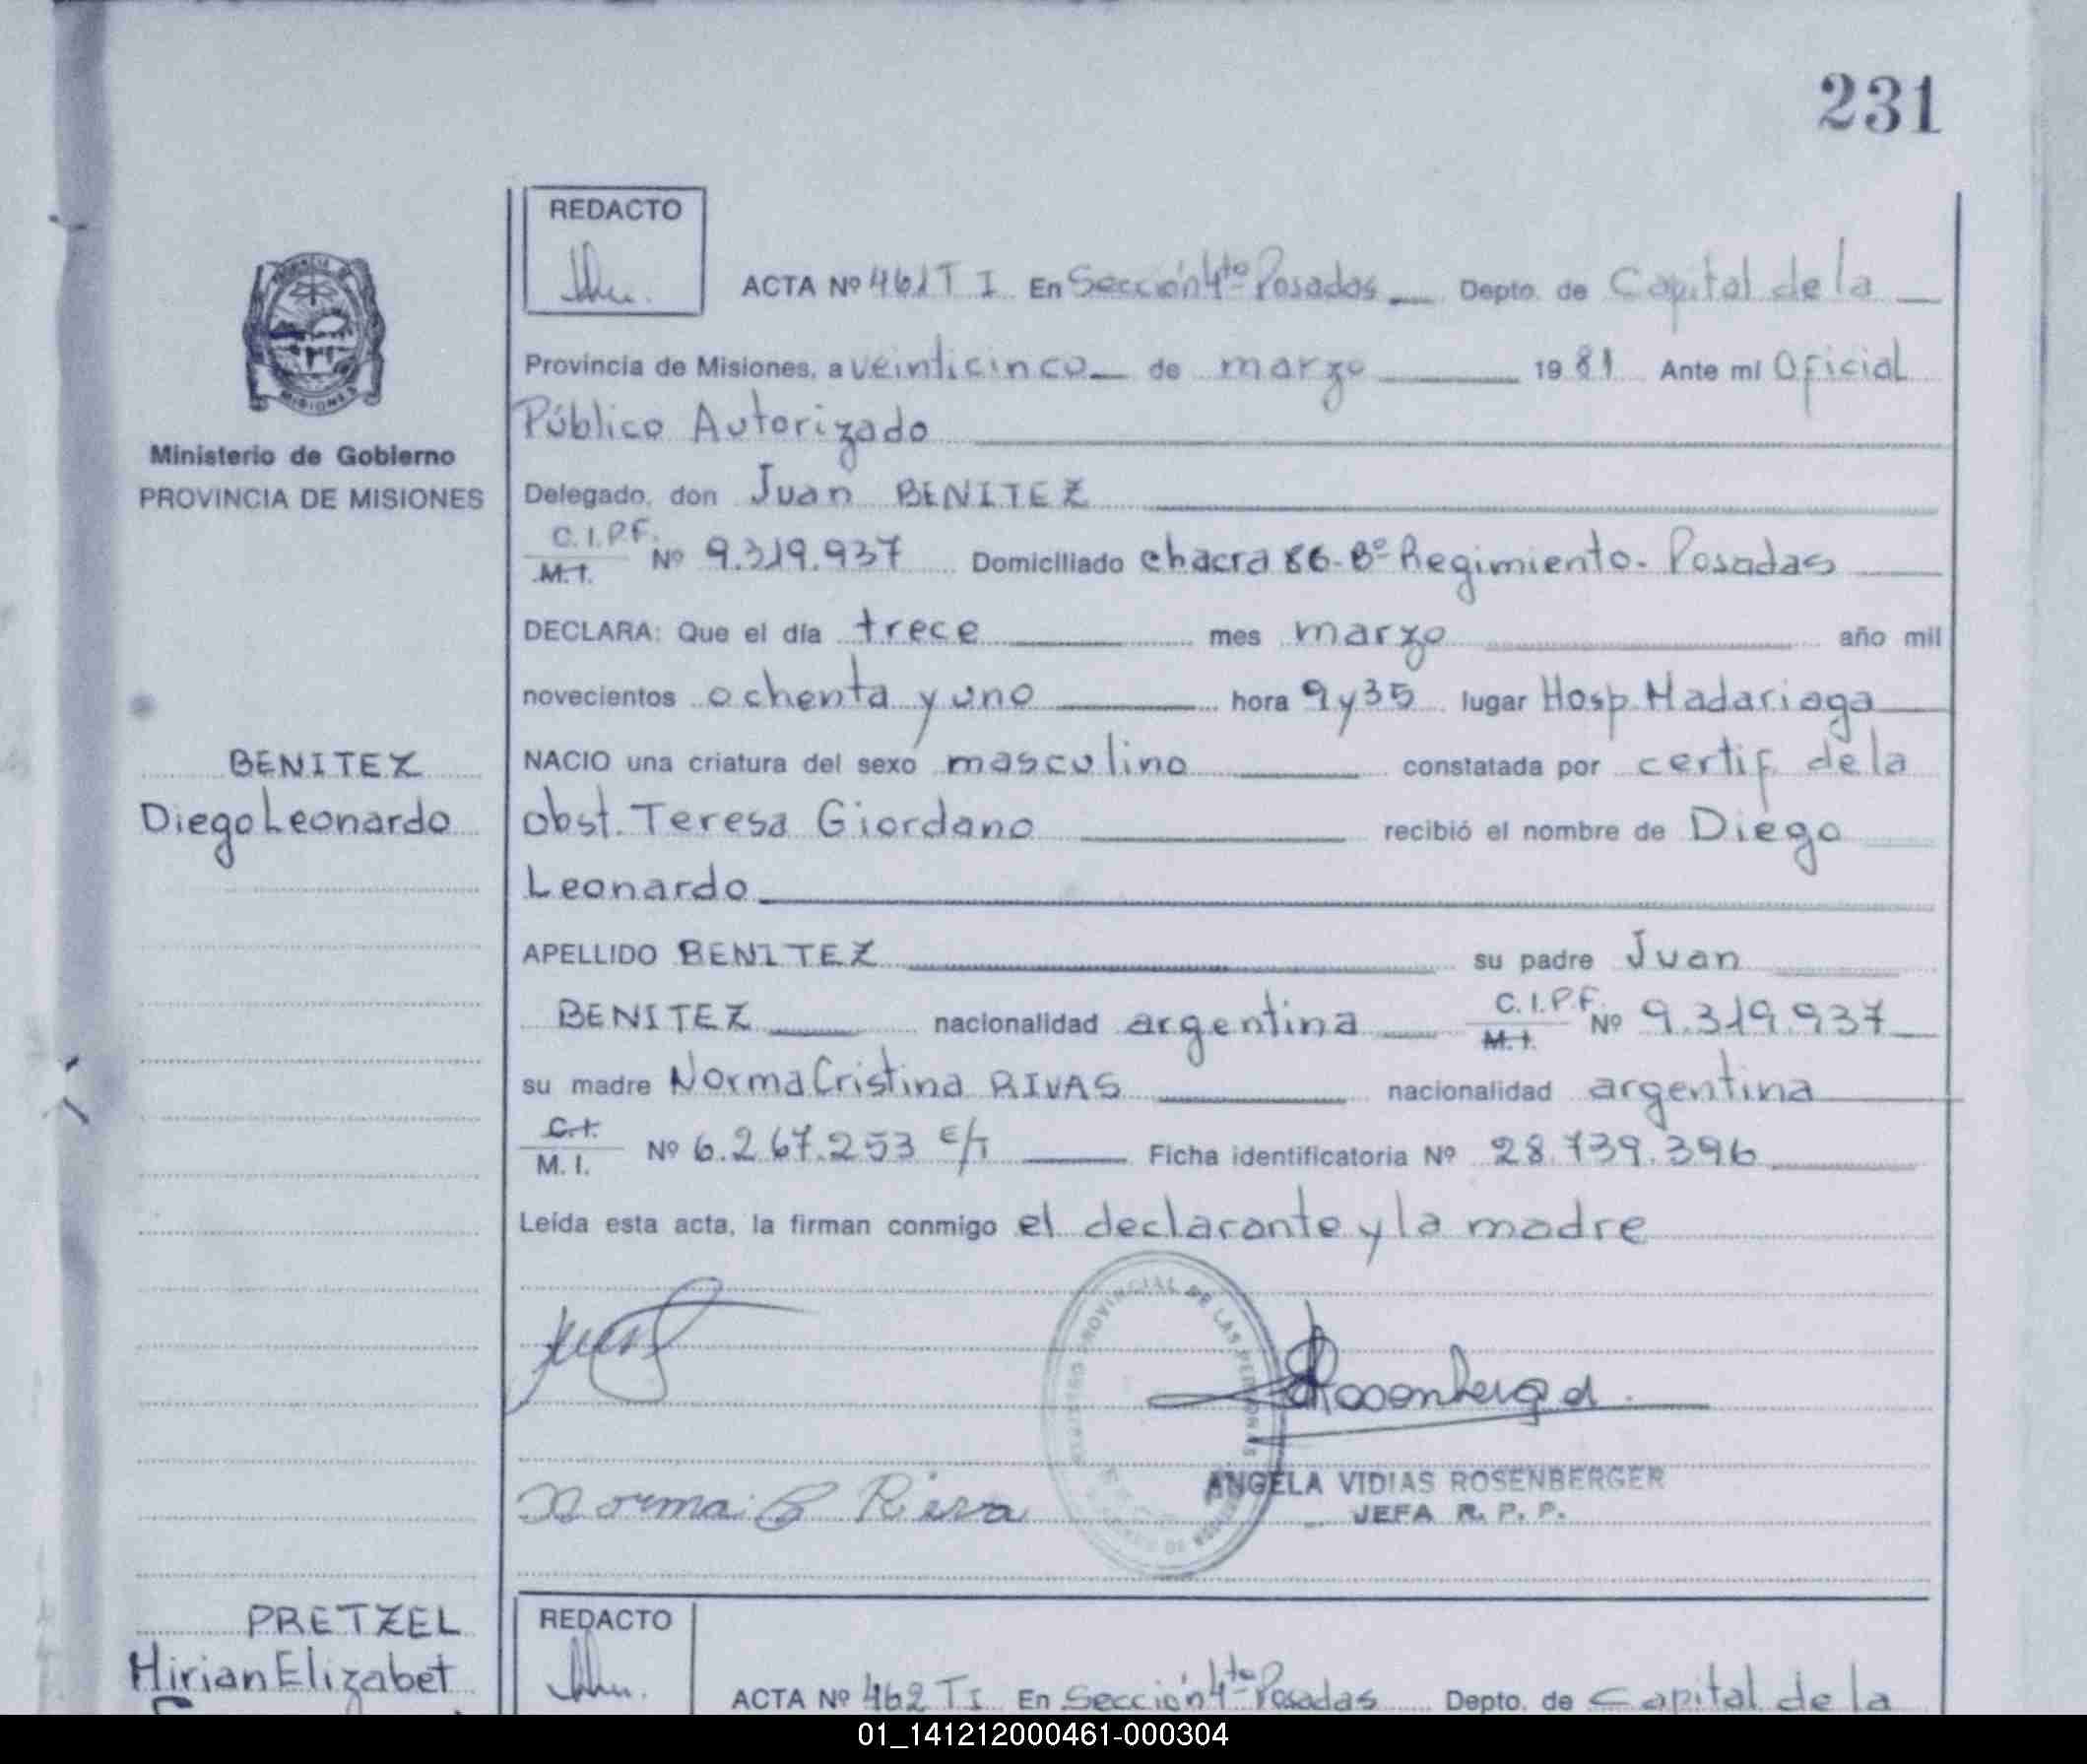 231
REDACTO
ACTA Nº 461 T I En Sección 4ta Posadas Depto. de Capital de la
Provincia de Misiones, a veinticinco de marzo 1981 Ante mi Oficial
Público Autorizado
Ministerio de Gobierno
PROVINCIA DE MISIONES
Delegado, don Juan BENITEZ
C.I.P.F.
M.I. Nº 9.319.937 Domiciliado chacra 86-Bº Regimiento- Posadas
DECLARA: Que el día trece mes marzo año mil
novecientos ochenta y uno hora 9 y 35 lugar Hosp Madariaga
BENITEZ
Diego Leonardo
NACIO una criatura del sexo masculino constatada por certif. de la
obst. Teresa Giordano recibió el nombre de Diego
Leonardo
APELLIDO BENITEZ su padre Juan
BENITEZ nacionalidad argentina C.I.P.F. M.I. Nº 9.319.937
su madre Norma Cristina RIVAS nacionalidad argentina
C.I.
M.I. Nº 6.267.253 E/T Ficha identificatoria Nº 28.739.396
Leída esta acta, la firman conmigo el declarante y la madre
REGISTRO PROVINCIAL DE LAS PERSONAS
Norma C Riva
ANGELA VIDIAS ROSENBERGER
JEFA R. P. P.
PRETZEL
Mirian Elizabet
REDACTO
ACTA Nº 462 T I En Sección 4ta Posadas Depto. de Capital de la
01_141212000461-000304